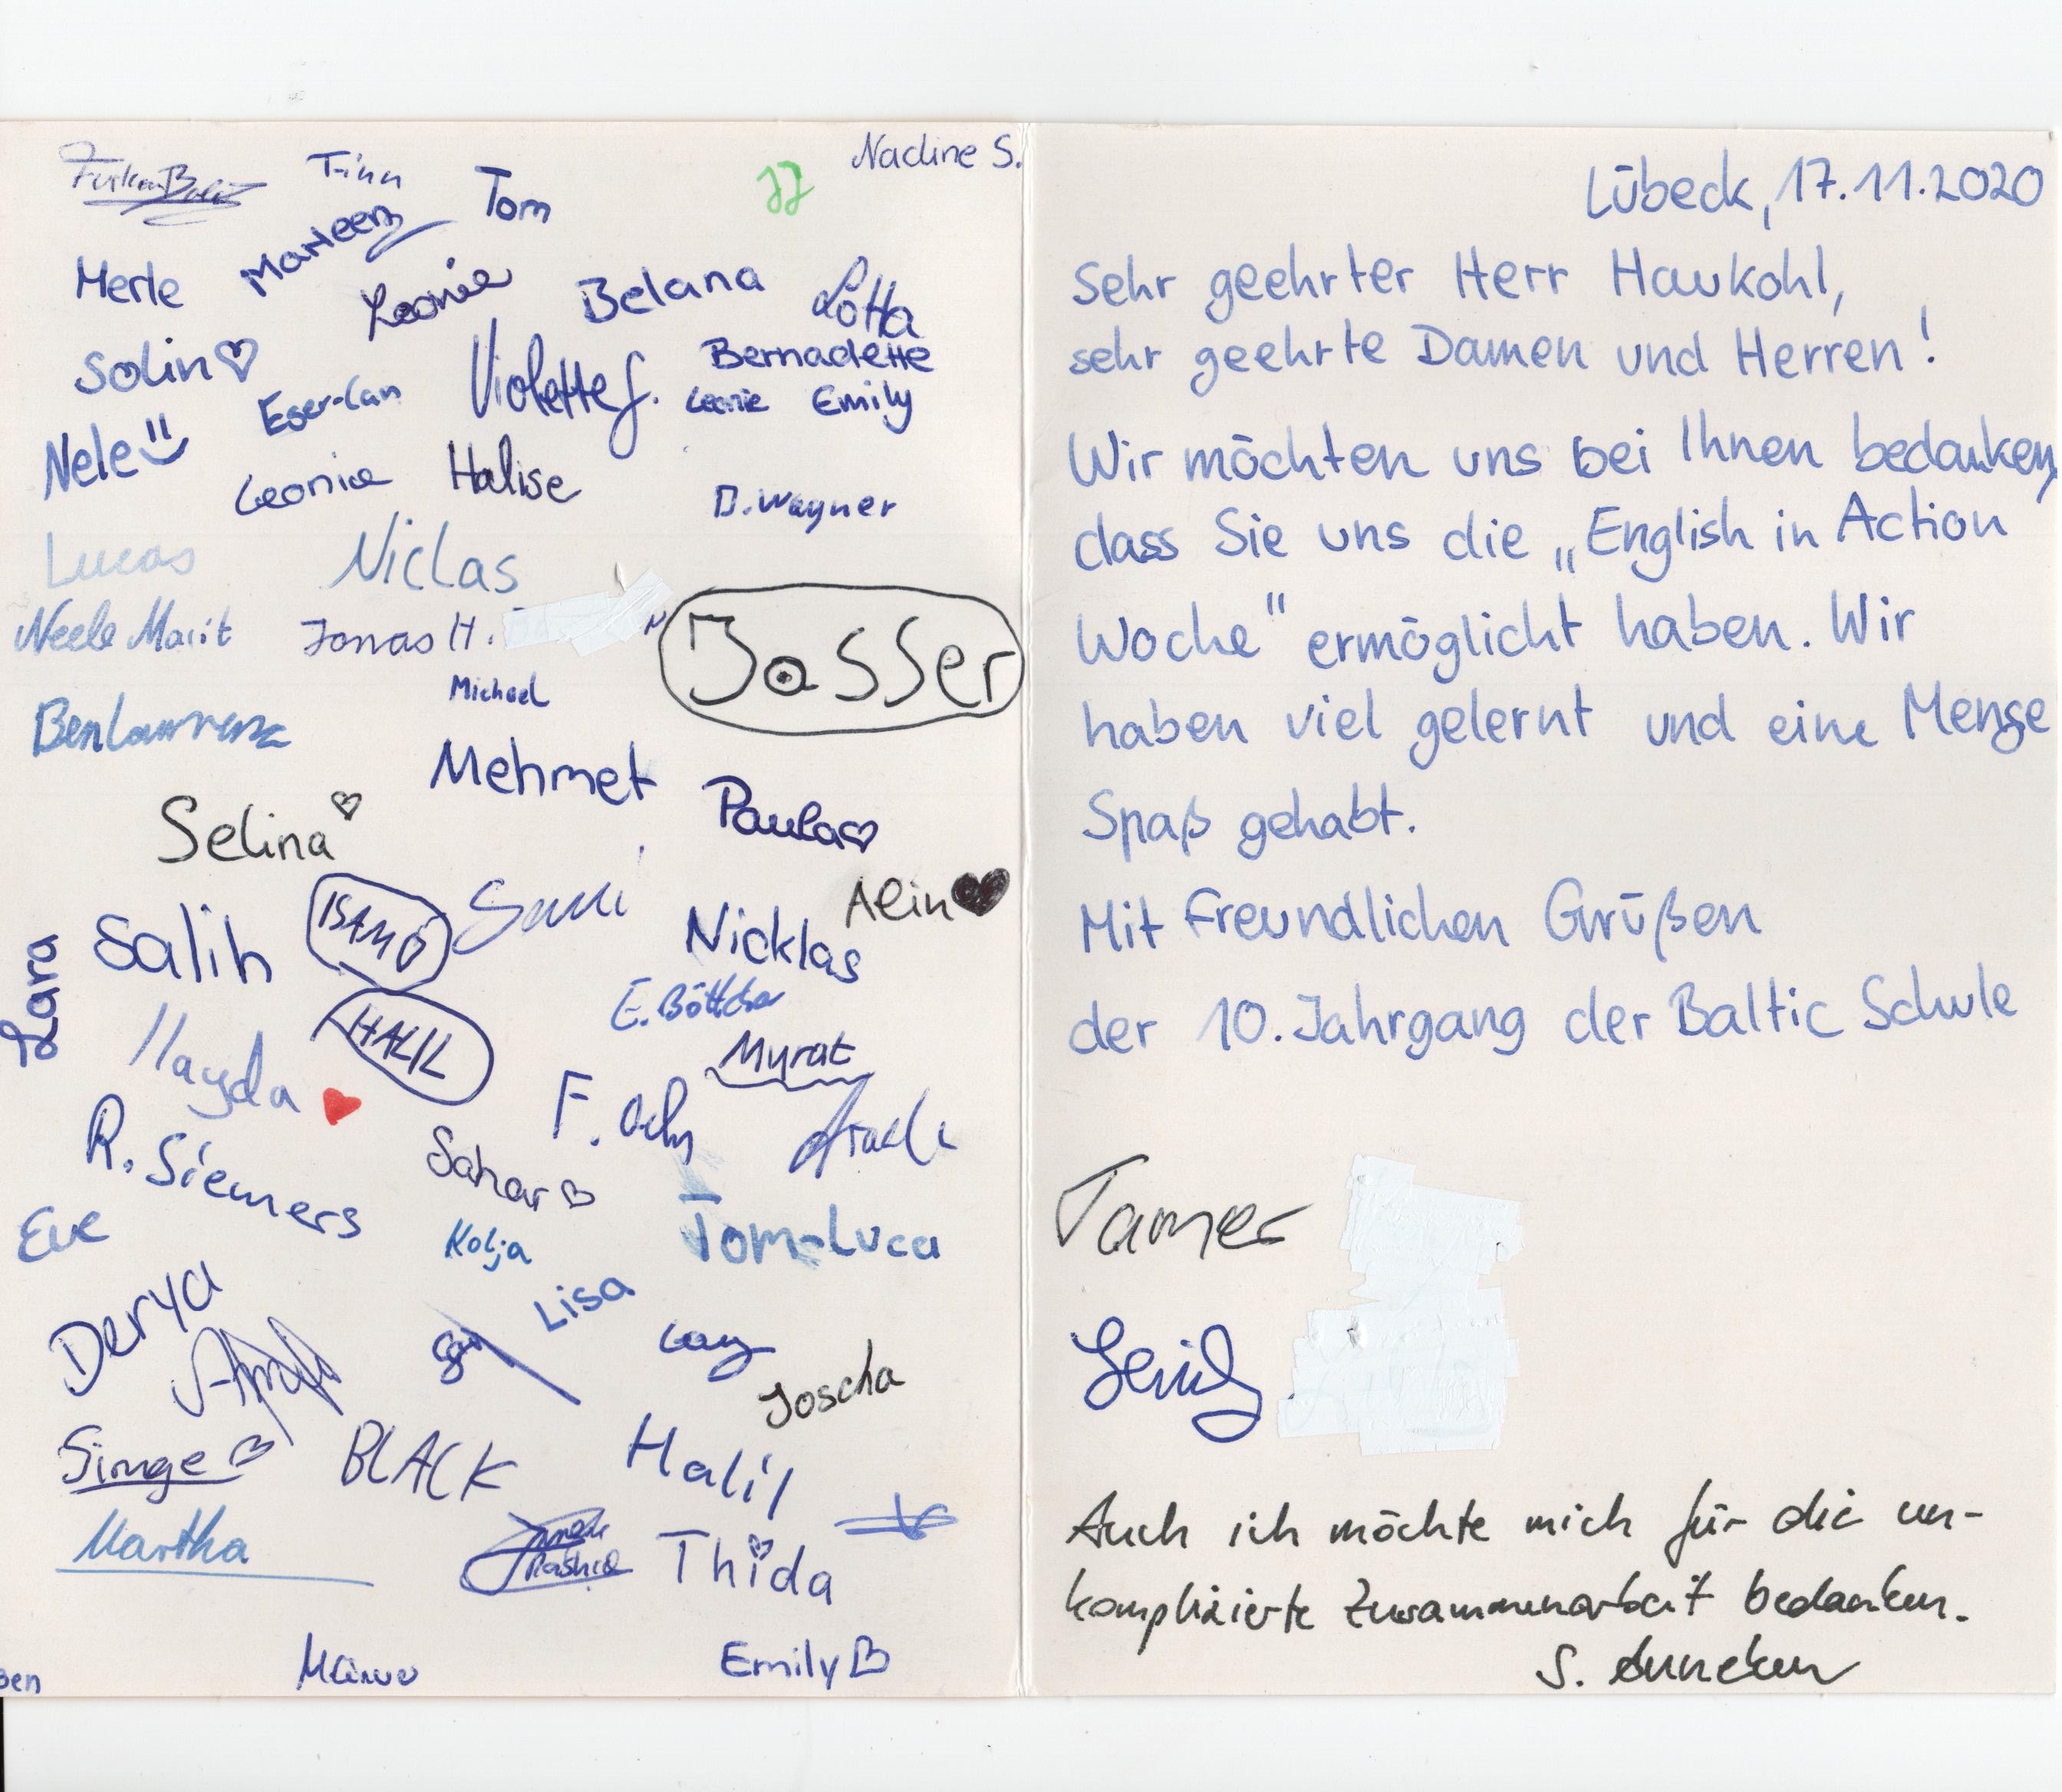 Nadine S.
Finn
Tom
JJ
Marleen
Merle
Leonie
Belana
Lotta
Solin
Violette S.
Bernadette
Eser-Can
Leonie
Emily
Nele
Leonie
Halise
D. Wagner
Lucas
Niclas
Neele Marit
Jonas H.
Jasser
Michael
Ben Lawrenz
Mehmet
Paula
Selina
Alin
Salih
ISAMO
Nicklas
Lara
E. Böttcher
HALIL
Myrat
Ilayda
R. Siemers
Sahar
Eve
Kolja
Tom-Luca
Lisa
Derya
Joscha
Simge
BLACK
Halil
Martha
Thida
Emily
Lübeck, 17.11.2020
Sehr geehrter Herr Haukohl,
sehr geehrte Damen und Herren!
Wir möchten uns bei Ihnen bedanken,
dass Sie uns die „English in Action
Woche“ ermöglicht haben. Wir
haben viel gelernt und eine Menge
Spaß gehabt.
Mit Freundlichen Grüßen
der 10. Jahrgang der Baltic Schule
Tamer
Auch ich möchte mich für die un-
komplizierte Zusammenarbeit bedanken.
S. Anneken